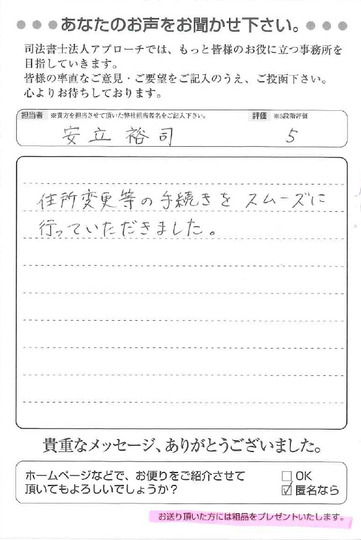 ●●●あなたのお声をお聞かせ下さい。●●●
司法書士法人アプローチでは、もっと皆様のお役に立つ事務所を
目指していきます。
皆様の率直なご意見・ご要望をご記入のうえ、ご投函下さい。
心よりお待ちしております。
担当者 ※貴方を担当させて頂いた弊社担当者名をご記入下さい。 評価 ※5段階評価
安立裕司 5
住所変更等の手続きをスムーズに
行っていただきました。
貴重なメッセージ、ありがとうございました。
ホームページなどで、お便りをご紹介させて
頂いてもよろしいでしょうか?
□OK
☑匿名なら
お送り頂いた方には粗品をプレゼントいたします。